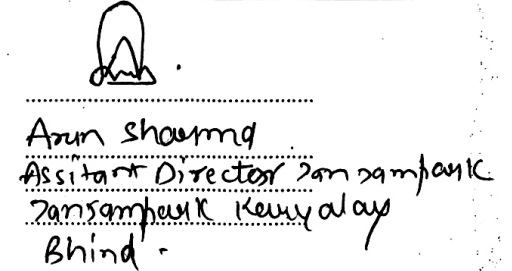 Arun Sharma
Assitant Director Jansampark
Jansampark Karyalay
Bhind.